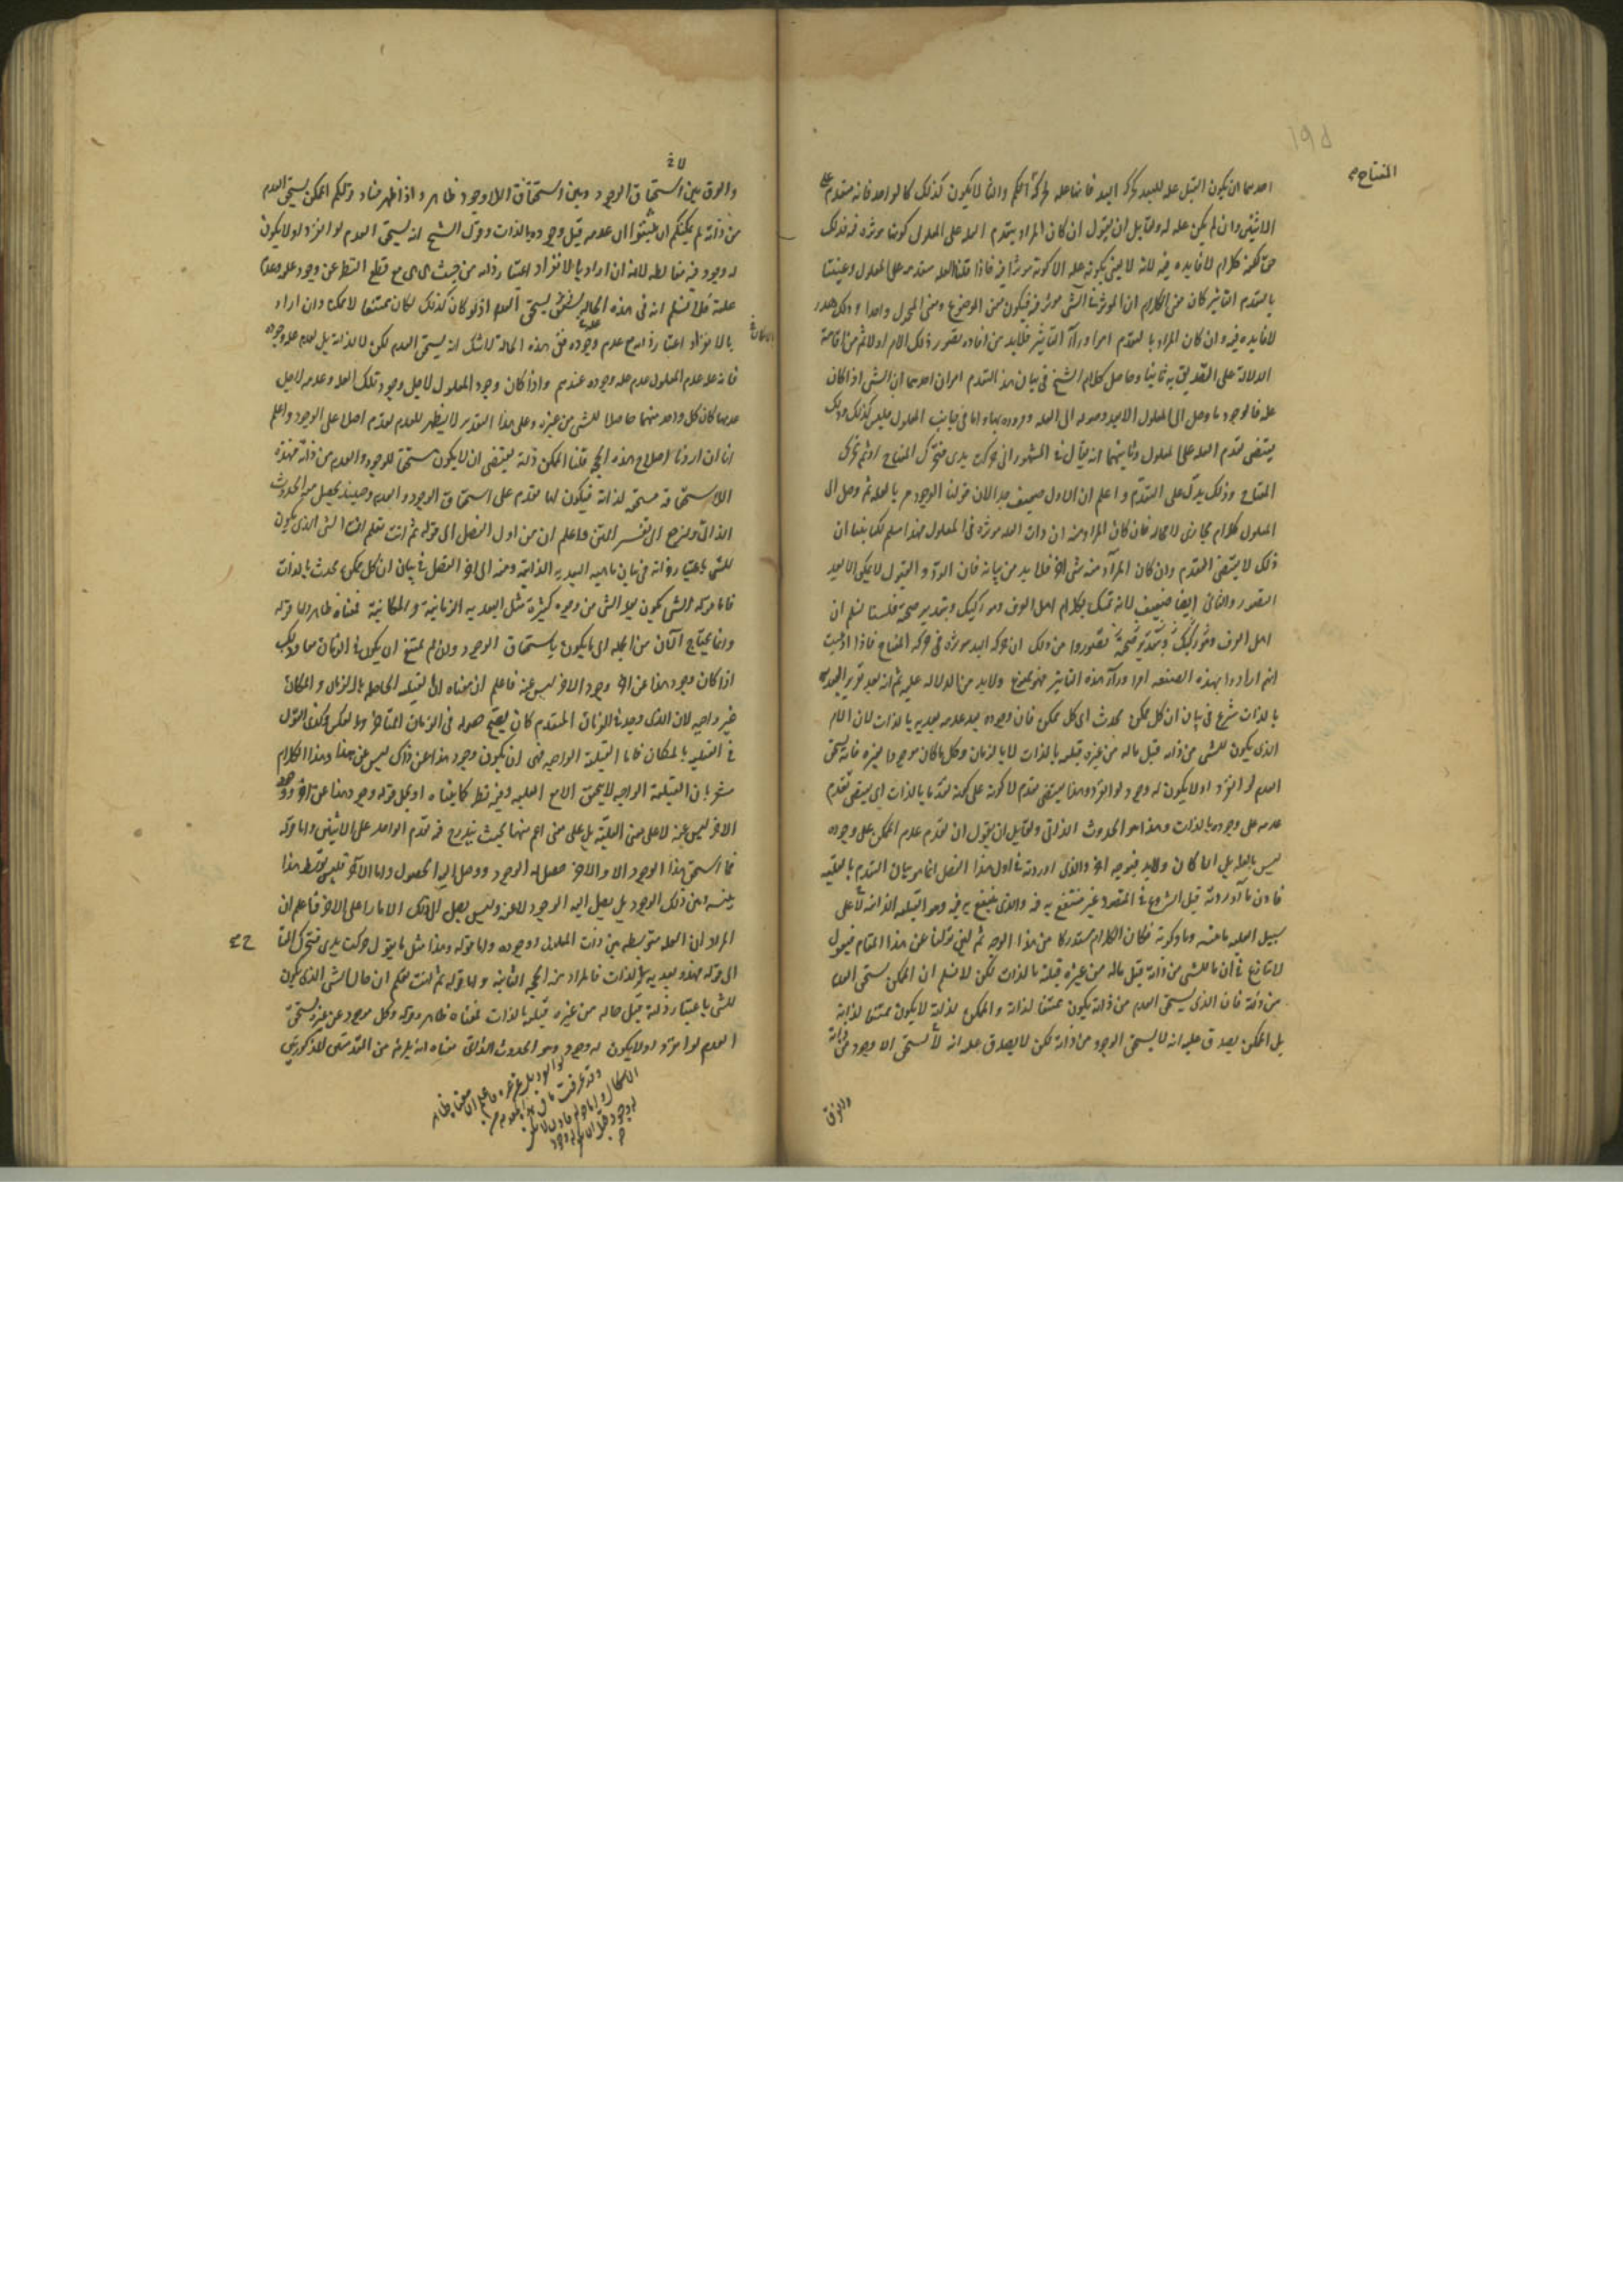 المفتاح
احدهما ان يكون القبل علة للبعد كحركة اليد فانها علة لحركة الكم والثا لا يكون كذلك كالواحد فانه متقدم على
الاثنين وان لم يكن علة له ولقايل ان يقول ان كان المراد بتقدم العلة على المعلول كونها موثره فيه فذلك
حق لكنه كلام لا فايده فيه لانه لا معنى لكونه علة الا كونه موثرا فيه فاذا قلنا العلة متقدمه على المعلول وعنينا
بالتقدم التاثير كان معنى الكلام ان الموثر في الشى موثر فيه فيكون معنى الموضوع ومعنى المحمول واحدا وذلك هدر
لا فايده فيه وان كان المراد بالتقدم امرا ورآء التاثير فلابد من افاده تصور ذلك الامر اولا ثم من اقامة
الدلالة على التصديق به ثانيا وحاصل كلام الشيخ في بيان هذا التقدم امران احدهما ان الشى اذا كان
علة فالوجود ما وصل الى المعلول الا بعد وصوله الى العلة ومروره بها واما في جانب المعلول فليس كذلك وذلك
يقتضى تقدم العلة على المعلول وثانيهما انه يقال في المشهور انى حركت يدى فتحرك المفتاح او ثم تحرك
المفتاح وذلك يدل على التقدم واعلم ان الاول ضعيف جدا لان قولنا الوجود مر بالعلة ثم وصل الى
المعلول كلام مجازى لا محالة فان كان المراد منه ان ذات العلة موثره في المعلول فهذا مسلم لكنا بينا ان
ذلك لا يقتضى التقدم وان كان المراد منه شى اخر فلابد من بيانه فان الرد والقبول لا يمكن الا بعد
التصور والثانى ايضا ضعيف لانه تمسك بكلام اهل العرف وهو ركيك وبتقدير صحته فلسنا نسلم ان
اهل العرف تصوروا من ذلك ان حركة اليد موثره في حركة المفتاح فاذا ادعيت
انهم ارادوا بهذه الصنعه امرا ورآء هذه التاثير فهو ممنوع ولابد من الدلالة عليه ثم انه بعد تقرير البعدية
بالذات شرع في بيان ان كل ممكن محدث اى كل ممكن فان وجوده بعد عدمه بعديه بالذات لان الامر
الذى يكون للشى من ذاته قبل ماله من غيره قبليه بالذات لا بالزمان وكل ما كان موجودا بغيره فانه يستحق
العدم لو انفرد او لا يكون له وجود لو انفرد وهذا يقتضى تقدم لا كونه على كونه تقدما بالذات اى يقتضى تقدم
عدمه على وجوده بالذات وهذا هو الحدوث الذاتى ولقايل ان يقول ان تقدم عدم الممكن على وجوده
ليس بالعلية بل ان كان ولابد فبوجه اخر والذى اوردته في اول هذا الفصل انما هو بيان التقدم بالعلية
فاذن ما اوردته قبل الشروع في المقصود غير منتفع به فيه والذى ينتفع به فيه وهو القبليه الذاتيه لا على
سبيل العلية ما عينته وما ذكرته فكان الكلام مستدركا من هذا الوجه ثم لئن نزلنا عن هذا المقام فنقول
لا نزاع في ان ما للشى من ذاته قبل ماله من غيره قبليه بالذات لكن لا نسلم ان الممكن يستحق العدم
من ذاته فان الذى يستحق العدم من ذاته يكون ممتنعا لذاته والممكن لذاته لا يكون ممتنعا لذاته
بل الممكن يصدق عليه انه لا يستحق الوجود من ذاته لكن لا يصدق عليه انه يستحق الا وجود من ذاته
والفرق
والفرق بين استحقاق الوجود وبين استحقاق اللا وجود ظاهر واذا ظهر فساد قولكم الممكن يستحق العدم
من ذاته لم يمكنكم ان تثبتوا ان عدمه قبل وجوده بالذات وقول الشيخ انه يستحق العدم لو انفرد او لا يكون
له وجود فيه مغالطه لانه ان اراد بالانفراد اعتبار ذاته من حيث هى هى مع قطع النظر عن وجود علته وعدم
علته فلا نسلم انه في هذه الحالة يستحق العدم اذ لو كان كذلك لكان ممتنعا لا ممكنا وان اراد
بالانفراد اعتبار ذاته مع عدم علة وجوده ففى هذه الحالة لا شك انه يستحق العدم لكن لا لذاته بل لعدم علة وجوده
فانه علة عدم المعلول عدم علة وجوده عندهم واذا كان وجود المعلول لاجل وجود تلك العلة وعدمه لاجل
عدمها كان كل واحد منهما حاصلا للشى من غيره وعلى هذا التقدير لا يظهر للعدم تقدم اصلا على الوجود واعلم
انا ان اردنا اصلاح هذه الحجة قلنا الممكن لذاته يقتضى ان لا يكون مستحقا للوجود والعدم من ذاته فهذه
اللا استحقاقية مستحقة لذاته فيكون لها تقدم على استحقاق الوجود والعدم وحينئذ يحصل منه الحدوث
الذاتى ولنرجع الى تفسير المتن فاعلم ان من اول الفصل الى قوله ثم انت تعلم ان الشى الذى يكون
للشى باعتبار ذاته في بيان ماهيه البعديه الذاتيه ومنه الى اخر الفصل في بيان ان كل ممكن محدث بالذات
فاما قوله الشى يكون بعد الشى من وجوه كثيرة مثل البعديه الزمانية والمكانية فمعناه ظاهر واما قوله
وانما نحتاج الآن من الجملة الى ما يكون باستحقاق الوجود وان لم يمتنع ان يكون في الزمان معا وذلك
اذا كان وجود هذا عن اخر ووجود الاخر ليس عنه فاعلم ان معناه ان القبليه الحاصله بالزمان والمكان
غير واجبه لان الذى وجد في الزمان المتقدم كان يصح حصوله في الزمان المتاخر وبالعكس وكذى القول
في القبليه بالمكان فاما القبلية الواجبه فهى ان يكون وجود هذا عن ذاك وذاك ليس عن هذا وهذا الكلام
مشعر بان القبلية الواجبه لا يتحقق الا مع العليه وفيه نظر كما بيناه او يحمل قوله وجود هذا عن اخر ووجود
الاخر ليس عنه لا على معنى العلية بل على معنى اعم منها بحيث يندرج فيه تقدم الواحد على الاثنين واما قوله
فما استحق هذا الوجود الا والاخر حصل له الوجود ووصل اليه الحصول واما الآخر فليس يتوسط هذا
بينه وبين ذلك الوجود بل يصل اليه الوجود لا عنه وليس يصل الى ذلك الا مارا على الاخر فاعلم ان
المراد ان العلة متوسطه بين ذات المعلول ووجوده واما قوله وهذا مثل ما يقول حركت يدى فتحرك المفتاح
الى قوله فهذه بعديه بالذات فالمراد منه الحجة الثانية واما قوله ثم انت تعلم ان حال الشى الذى يكون
للشى باعتبار ذاته قبل حاله من غيره قبليه بالذات فمعناه ظاهر وقوله وكل موجود عن غيره يستحق
العدم لو انفرد او لا يكون له وجود وهو الحدوث الذاتى معناه انه يلزم من المقدمتين المذكورتين